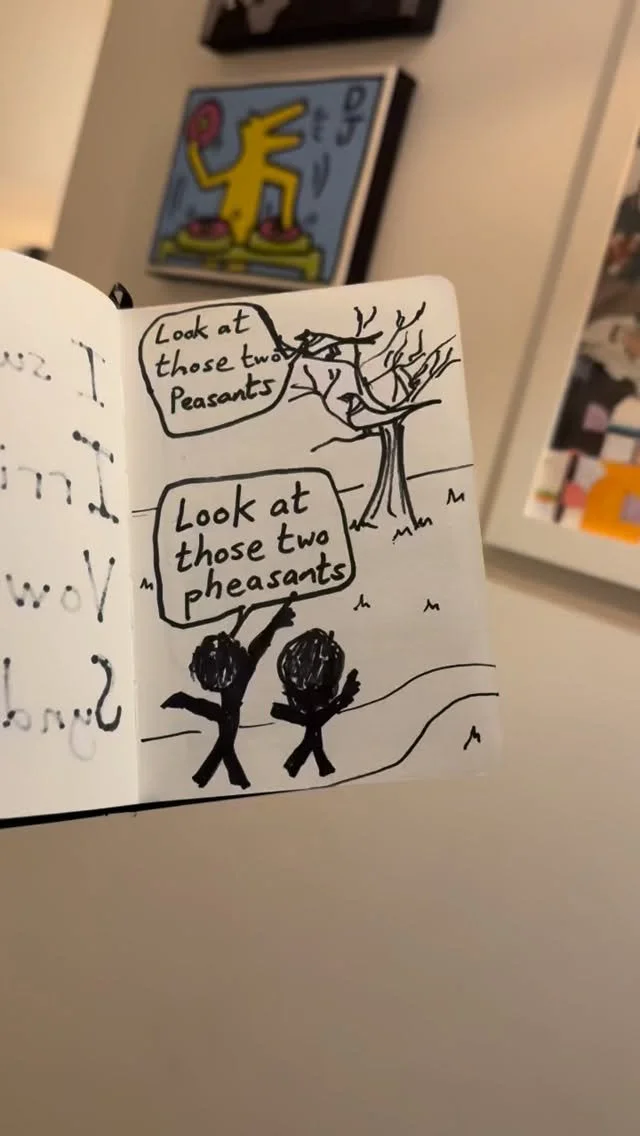 DJ
Look at
those two
Peasants
Look at
those two
pheasants